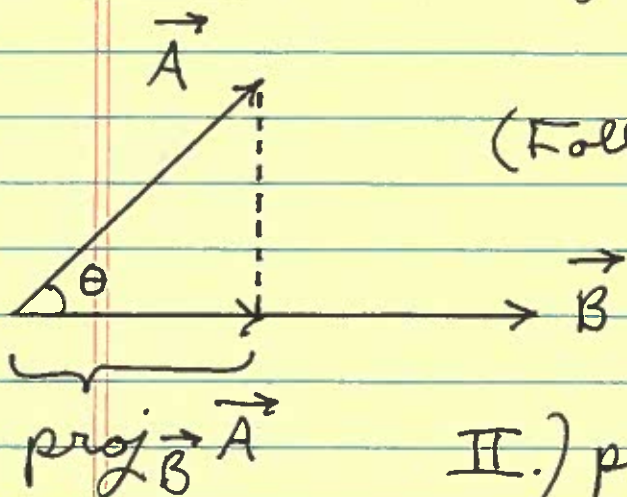 A
(Foll
θ
B
proj B A
II.) p